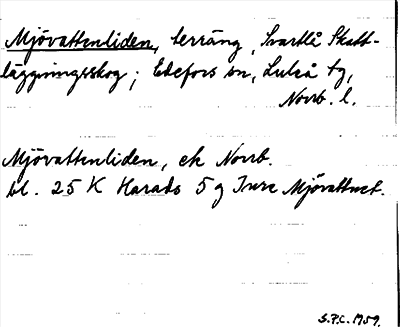 Mjövattenliden, terräng, Svartlå Skatt-
läggningsskog; Edefors sn, Luleå tg,
Norrb. l.
Mjövattenliden, ek Norrb.
bl. 25 K Harads 5 g Inre Mjövattnet.
S.P.C. 1959.